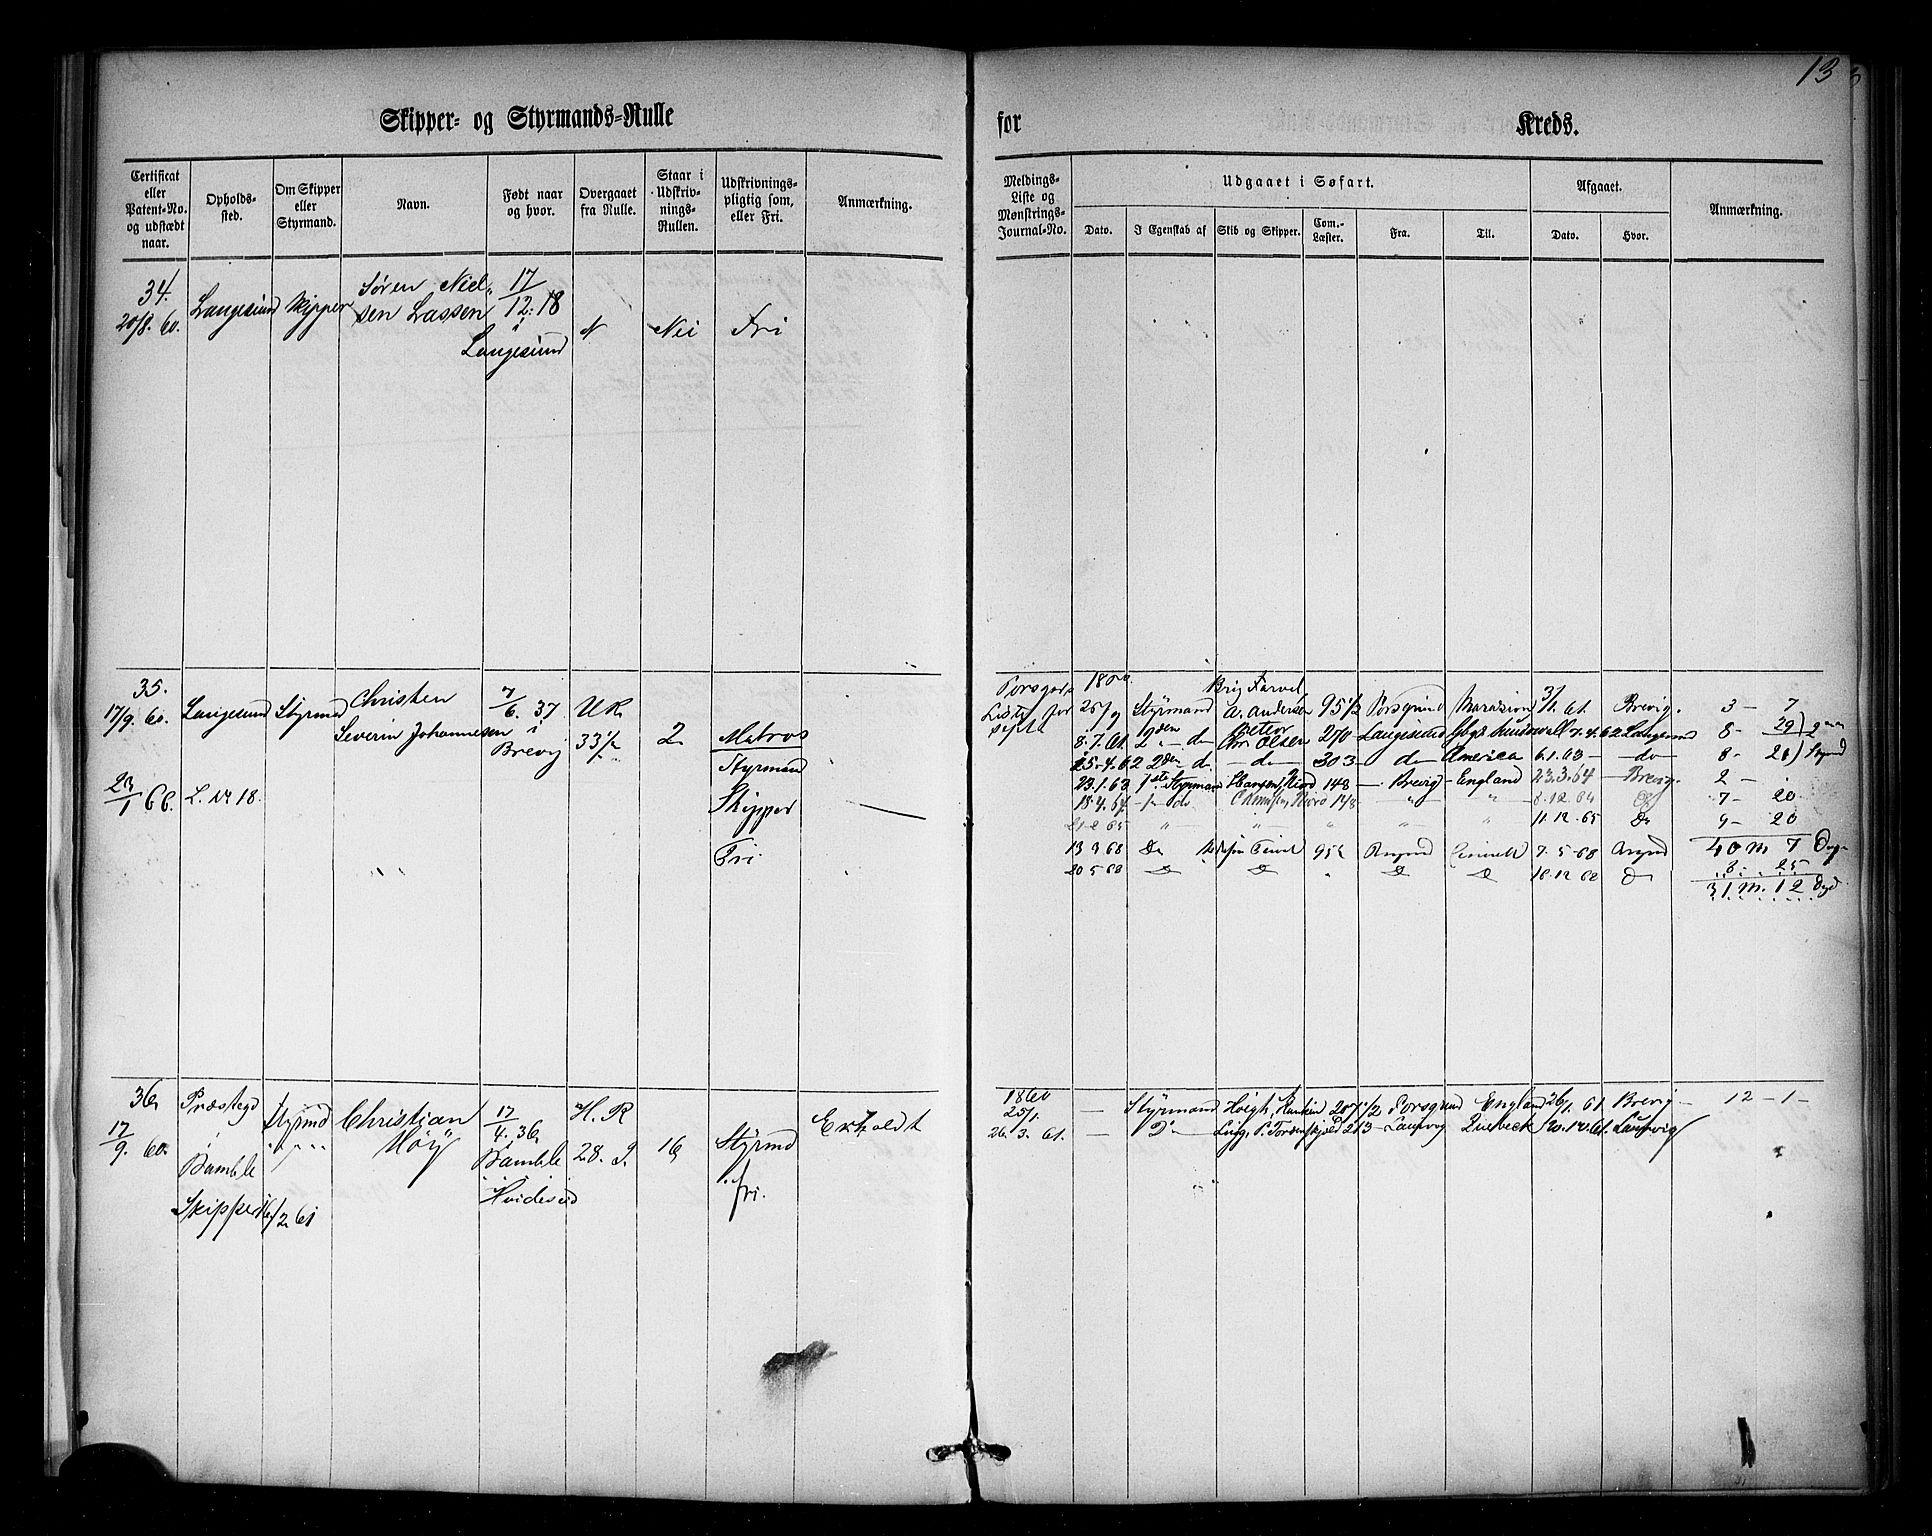 13
Skipper- og Styrmands-Rulle for Kreds.
Certificat eller Patent-No. og udstædt naar.
Opholds-sted.
Om Skipper eller Styrmand.
Navn.
Født naar og hvor.
Overgaaet fra Rulle.
Staar i Udskriv-nings-Rullen.
Udskrivnings-pligtig som, eller Fri.
Anmærkning.
Meldings-Liste og Mønstrings-Journal-No.
Udgaaet i Søfart.
Dato.
I Egenskab af
Skib og Skipper.
Com.-Læster.
Fra.
Til.
Afgaaet.
Dato.
Hvor.
Anmærkning.
34.
20/8. 60.
Langesund
Skipper
Søren Niel-
sen Lassen
17/12. 18
i
Langesund
N
Nei
Fri
35.
17/9. 60.
Langesund
Styrmd
Christen
Severin Johannesen
7/6. 37
i
Brevig
UR
33 1/2
2
Matros
Styrmand
Skipper
Fri.
23/1 66.
L. No 18.
Porsgr.
Liste for
Septb
25/9 Styrmand Brig Farvel A. Andersen 95 1/2 Porsgrund 3/1. 61. Brevig. 3 - 7
8.7.61. 2den do Olsen 270 Langesund 7.4.62 Langesund 8 - 29
25-4.62 2den do - do - 303 - do America 6.1.63 - do - 8 -
23.1.63 1ste Styrmand Hansen, Niord 148 - Brevig - England 23.3.64 - Brevig. 2 -
18.4.64 - 1 - do Niord 148 - " - " 8.12.64 Do 7 - 20
21-2 65 " " " " " 11.12.65 Do 9 - 20
13 3 68 Do 95 1/2 7-5-68 40 M 7 Dage
20 5 68 Do Do " Do Do 18.12 68 Do 8. 25
31 M. 12 Dage
36
17/9. 60.
Præstegd
i
Bamble
Styrmd
Christian
Höÿ
17/4. 36
i
Bamble
Hvideseid
H. R
28. 2.
16
Styrmd
fri.
Erholdt
Skipperb
6/2 61
1860
25/1. - Styrmand Höigh, 207 1/2 Porsgrund England 26/1. 61 Brevig - 12 - 1 -
26. 3. 61. - Do P. Tordenskjold 213 - Laurvig Quebeck 20.12.61. Laurvig